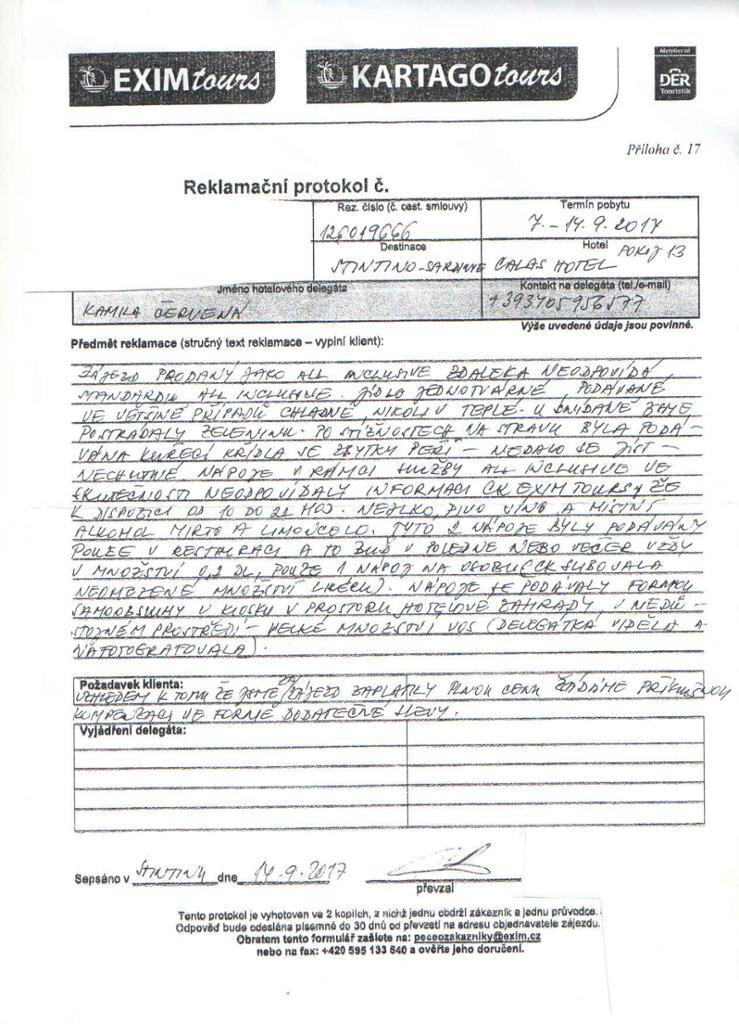 EXIMtours
KARTAGOtours
Member of
DER
Touristik
Příloha č. 17
Reklamační protokol č.
Rez. číslo (č. cest. smlouvy)
Termín pobytu
126019666
7. - 14. 9. 2017
Destinace
Hotel
STINTINO-SARDINIE
CALAS HOTEL POKOJ 13
Jméno hotelového delegáta
Kontakt na delegáta (tel./e-mail)
KAMILA ČERVENÁ
+393405956577
Výše uvedené údaje jsou povinné.
Předmět reklamace (stručný text reklamace – vyplní klient):
ZÁJEZD PRODANÝ JAKO ALL INCLUSIVE ZDALEKA NEODPOVÍDÁ
STANDARDU ALL INCLUSIVE. JÍDLO JEDNOTVÁRNÉ, PODÁVANÉ
VE VĚTŠINĚ PŘÍPADŮ CHLADNÉ, NIKOLIV TEPLÉ. U SNÍDANĚ JSME
POSTRÁDALY ZELENINU. PO STÍŽNOSTECH NA STRAVU BYLA PODÁ-
VÁNA KUŘECÍ KŘÍDLA SE ZBYTKY PEŘÍ - NEDALO SE JÍST -
NECHUTNÉ. NÁPOJE V RÁMCI SLUŽBY ALL INCLUSIVE VE
SKUTEČNOSTI NEODPOVÍDALY INFORMACI CK EXIM TOURS, ŽE
K DISPOZICI OD 10 DO 22 HOD. NEALKO, PIVO, VÍNO A MÍSTNÍ
ALKOHOL MIRTO A LIMONCELO. TYTO 2 NÁPOJE BYLY PODÁVÁNY
POUZE V RESTAURACI A TO BUĎ V POLEDNE NEBO VEČER VŽDY
V MNOŽSTVÍ 0,2 DL, POUZE 1 NÁPOJ NA OSOBU (CK SLIBOVALA
NEOMEZENÉ MNOŽSTVÍ). NÁPOJE SE PODÁVALY FORMOU
SAMOOBSLUHY V KIOSKU V PROSTORU HOTELOVÉ ZAHRADY, V NEDŮ-
STOJNÉM PROSTŘEDÍ - VELKÉ MNOŽSTVÍ VOS (DELEGÁTKA VIDĚLA A
NAFOTOGRAFOVALA).
Požadavek klienta:
VZHLEDEM K TOMU ŽE JSME ZA ZÁJEZD ZAPLATILY PLNOU CENU ŽÁDÁME PŘÍSLUŠNOU
KOMPENZACI VE FORMĚ DODATEČNÉ SLEVY.
Vyjádření delegáta:
Sepsáno v STINTINU dne 14. 9. 2017
převzal
Tento protokol je vyhotoven ve 2 kopiích, z nichž jednu obdrží zákazník a jednu průvodce.
Odpověď bude odeslána písemně do 30 dnů od převzetí na adresu objednavatele zájezdu.
Obratem tento formulář zašlete na: peceozakazniky@exim.cz
nebo na fax: +420 595 133 540 a ověřte jeho doručení.